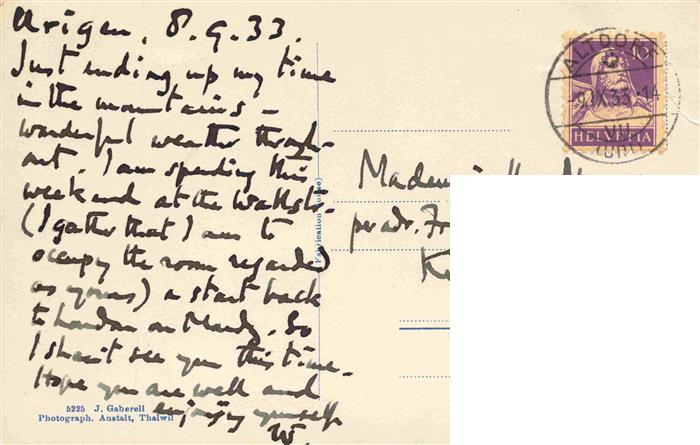 Arigen, 8.9.33.
Just ending up my time
in the mountains –
wonderful weather through-
out. I am spending this
weekend at the
(I gather that I am to
occupy the room regarded
as yours) & start back
to London on Monday. So
I shan't see you this time.
Hope you are well and
enjoying yourself
W.
5225 J. Gaberell
Photograph. Anstalt, Thalwil
Fabrication Suisse
ALTDORF
-9.IX.33.-14
VII
(URI)
10
HELVETIA
per adr. Fr